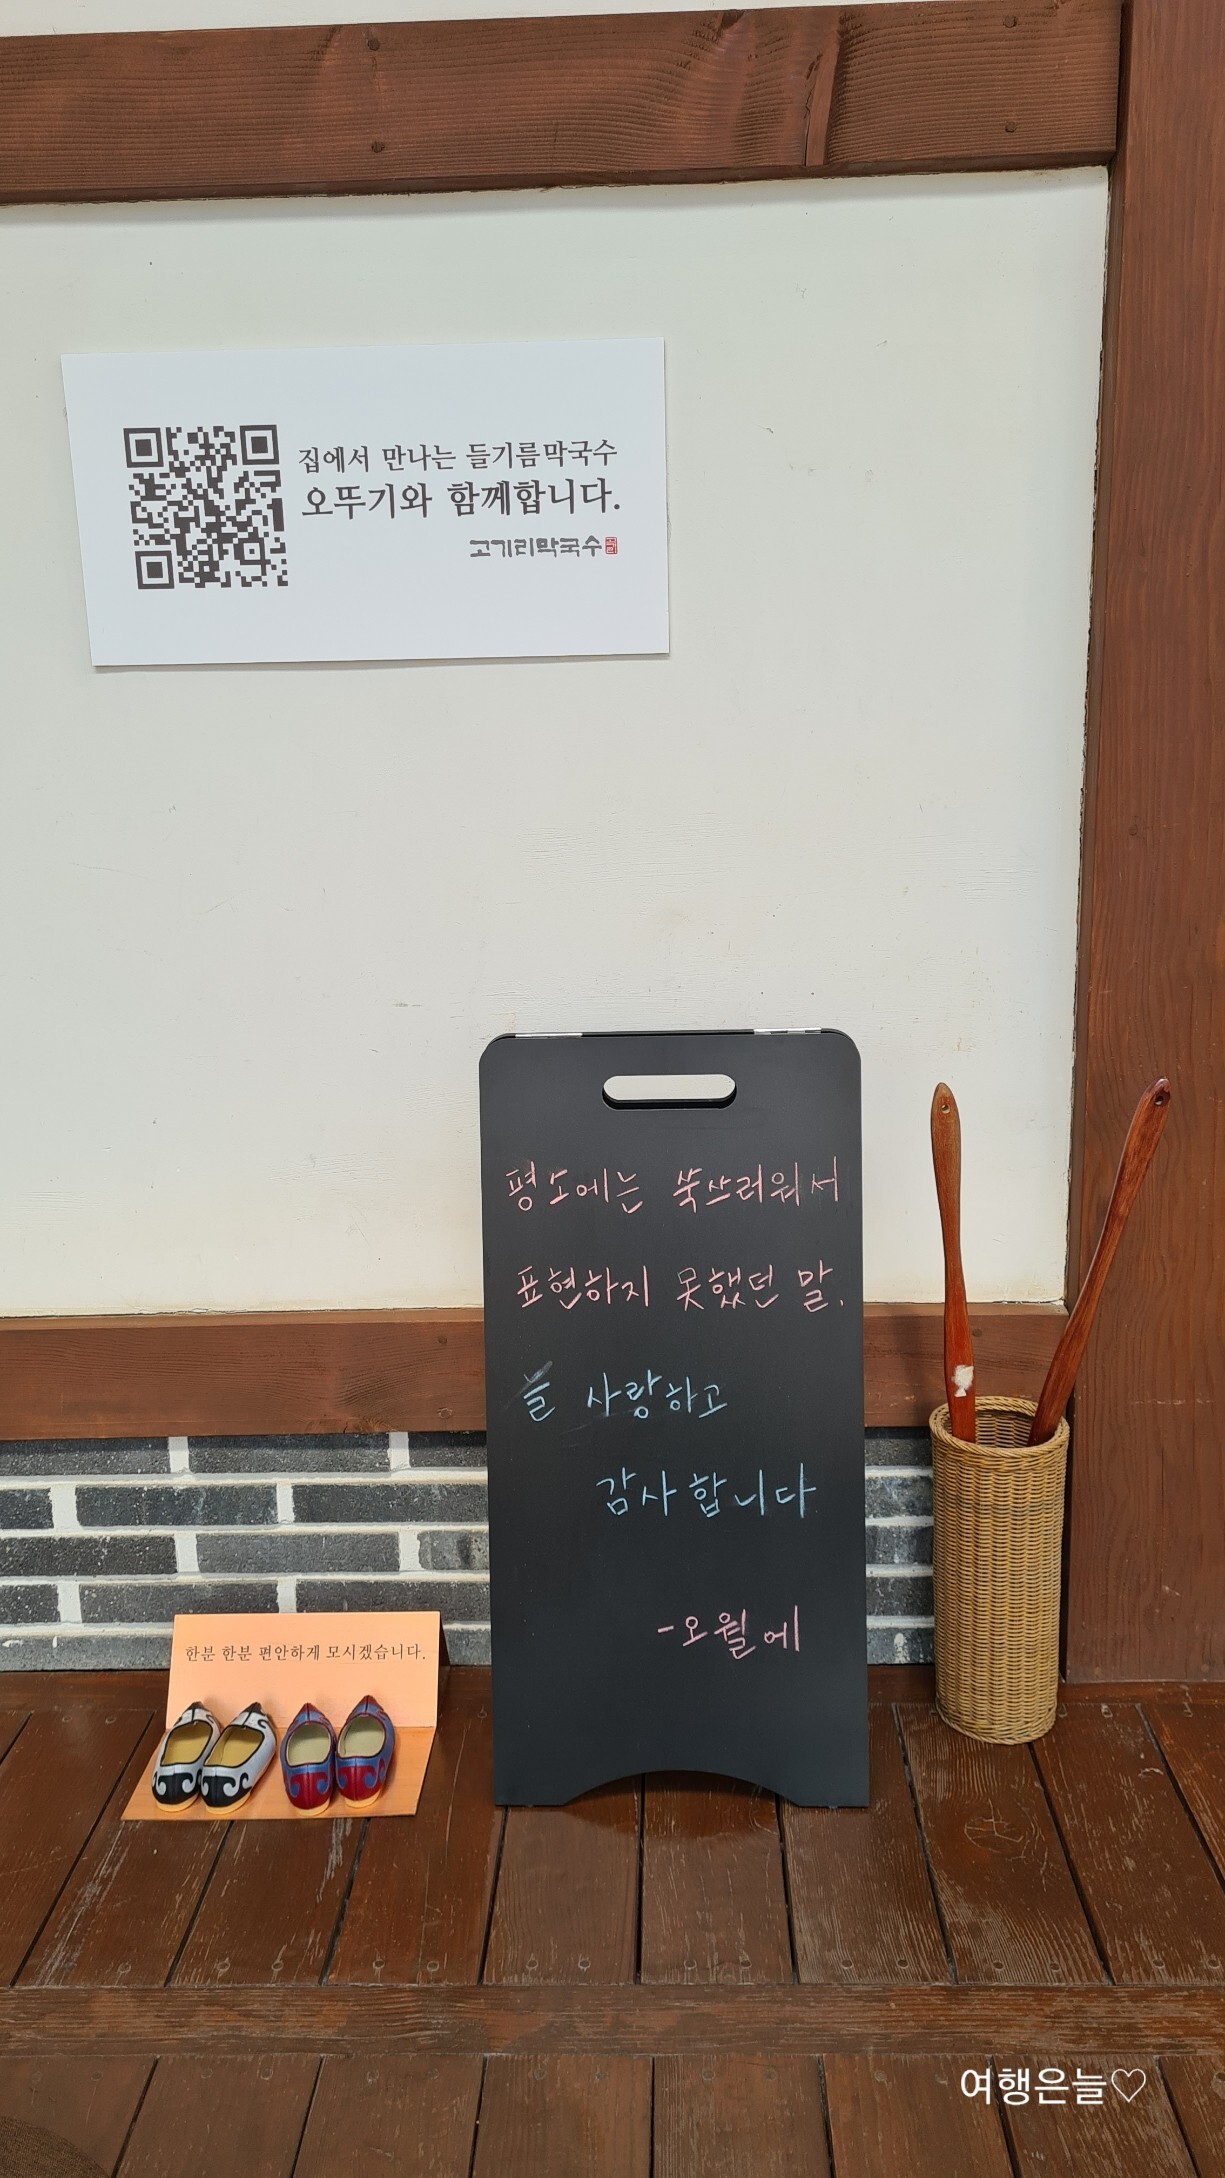 집에서 만나는 들기름막국수
오뚜기와 함께합니다.
고기리막국수
평소에는 쑥쓰러워서
표현하지 못했던 말.
늘 사랑하고
감사합니다
-오월에
한분 한분 편안하게 모시겠습니다.
여행은늘♡